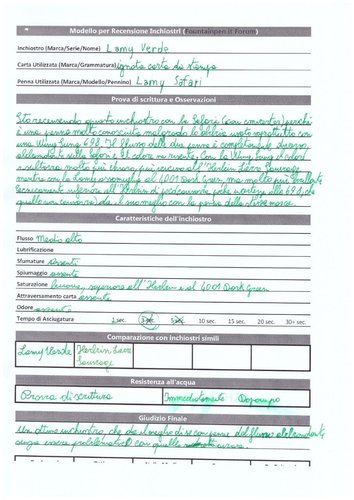 Modello per Recensione Inchiostri (Fountainpen.it Forum)
Inchiostro (Marca/Serie/Nome) Lamy Verde
Carta Utilizzata (Marca/Grammatura) ignota carta da stampa
Penna Utilizzata (Marca/Modello/Pennino) Lamy Safari
Prova di scrittura e Osservazioni
Sto recensendo questo inchiostro con la Safari (con converter) perché
è una penna molto conosciuta malgrado lo abbia usato soprattutto con
una Wing Sung 698. Il flusso delle due penne è completamente diverso
abbondante nella Safari e il colore ne risente. Con la Wing Sung il colore
risulterà molto più chiaro, più vicino all'Herbin Lierre Sauvage
mentre con la Lamy assomiglia al 4001 Dark Green ma molto più brillante
Caratteristiche dell'inchiostro
Flusso Medio alto
Lubrificazione
Sfumature assenti
Spiumaggio assente
Saturazione buona, superiore all'Herbin e al 4001 Dark Green
Attraversamento carta assente
Odore assente
Tempo di Asciugatura 1 sec. 3 sec. 5 sec. 10 sec. 15 sec. 20 sec. 30+ sec.
Comparazione con inchiostri simili
Lamy Verde Herbin Lierre
Sauvage
Resistenza all'acqua
Prova di scrittura Immediatamente Dopo tempo
Giudizio Finale
Un ottimo inchiostro, che dà il meglio di se con penne dal flusso abbondante
senza essere problematico con quelle